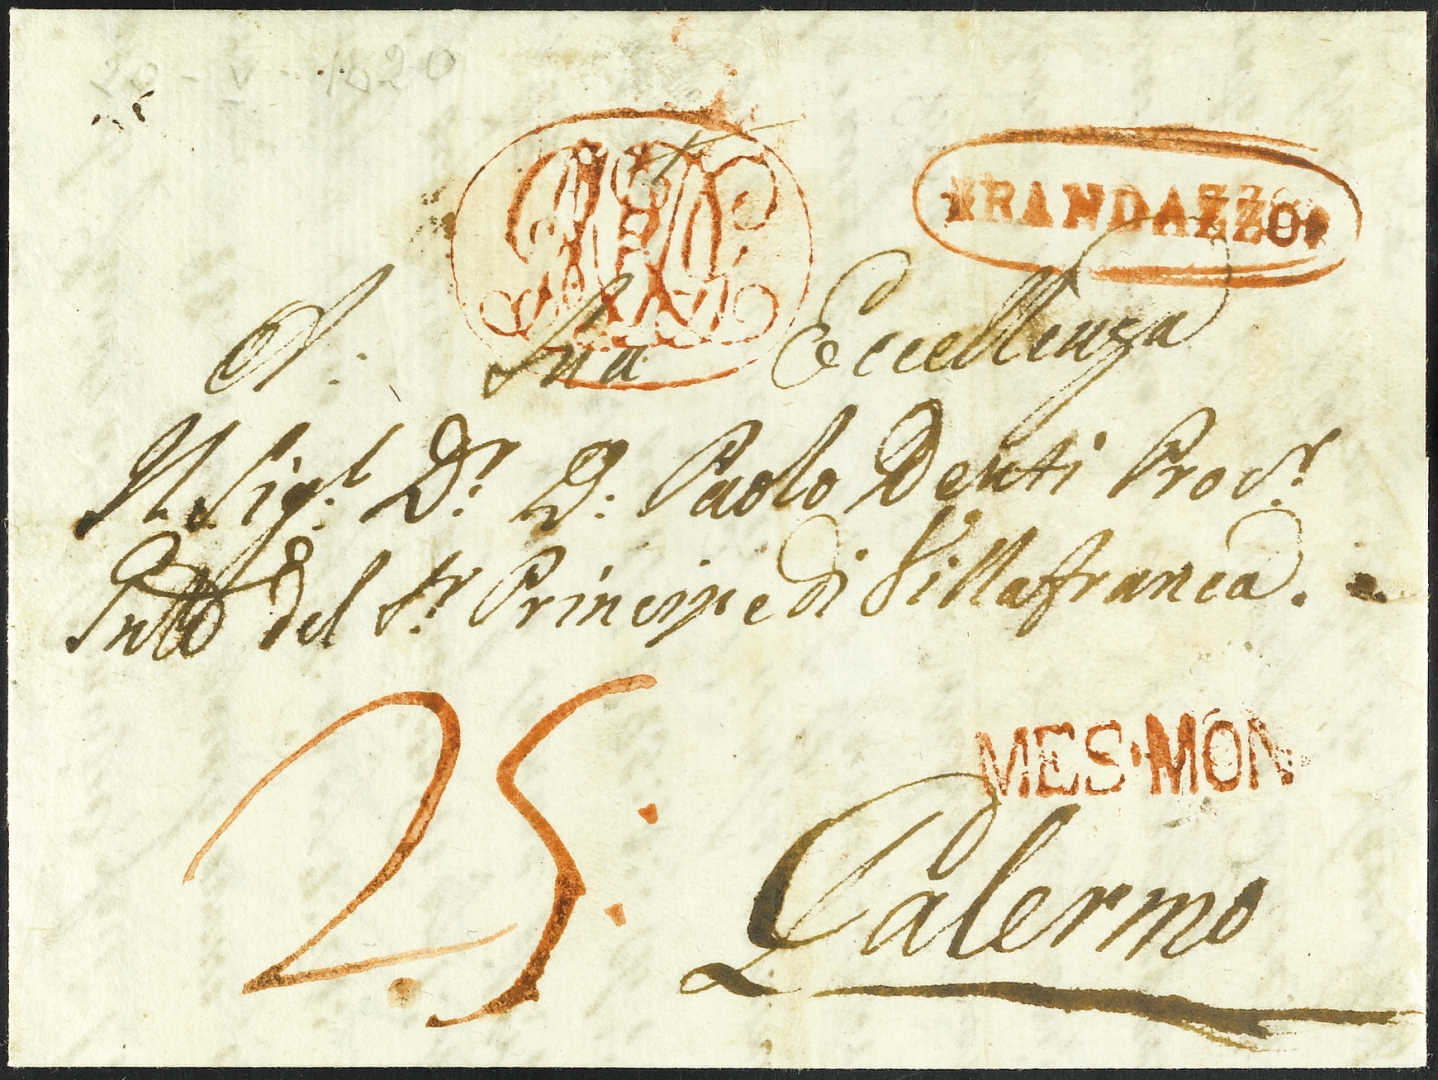 20 - V - 1820
RANDAZZO
A. Sua Eccellenza
Il Sig.r D.r D: Paolo Denti Proc.r
del S.r Principe di Villafranca.
25:
MES·MON.
Palermo